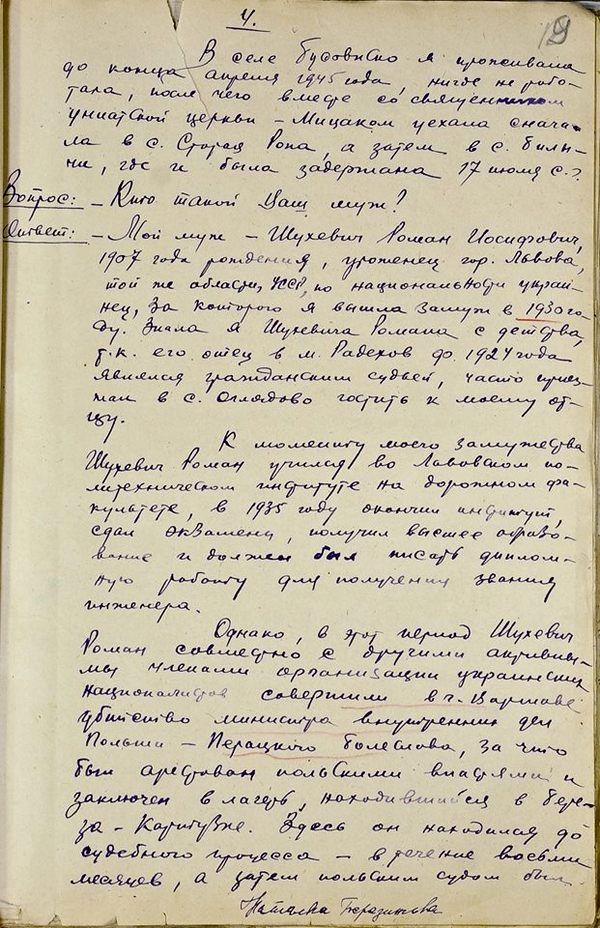 4.
19
В селе Бусовиско я проживала
до конца апреля 1945 года, нигде не рабо-
тала, после чего вместе со священником
униатской церкви - Мицаком уехала снача-
ла в с. Старая Ропа, а затем в с. Били-
чи, где и была задержана 17 июля с.г.
Вопрос: - Кто такой Ваш муж?
Ответ: - Мой муж - Шухевич Роман Иосифович,
1907 года рождения, уроженец гор. Львова,
той же области, УССР, по национальности украи-
нец, за которого я вышла замуж в 1930 го-
ду. Знала я Шухевича Романа с детства,
т.к. его отец в м. Радехов до 1924 года
являлся гражданским судьей, часто приез-
жал в с. Оглядово гостить к моему от-
цу.
К моменту моего замужества
Шухевич Роман учился во Львовском по-
литехническом институте на дорожном фа-
культете, в 1935 году окончил институт,
сдал экзамены, получил высшее образо-
вание и должен был писать диплом-
ную работу для получения звания
инженера.
Однако, в этот период Шухевич
Роман совместно с другими активны-
мы членами организации украинских
националистов совершили в г. Варшаве
убийство министра внутренних дел
Польши - Перацкого Болеслова, за что
был арестован польскими властями и
заключен в лагерь, находившийся в Бере-
за-Картузке. Здесь он находился до
судебного процесса - в течение восьми
месяцев, а затем польским судом был
Наталка Березинська